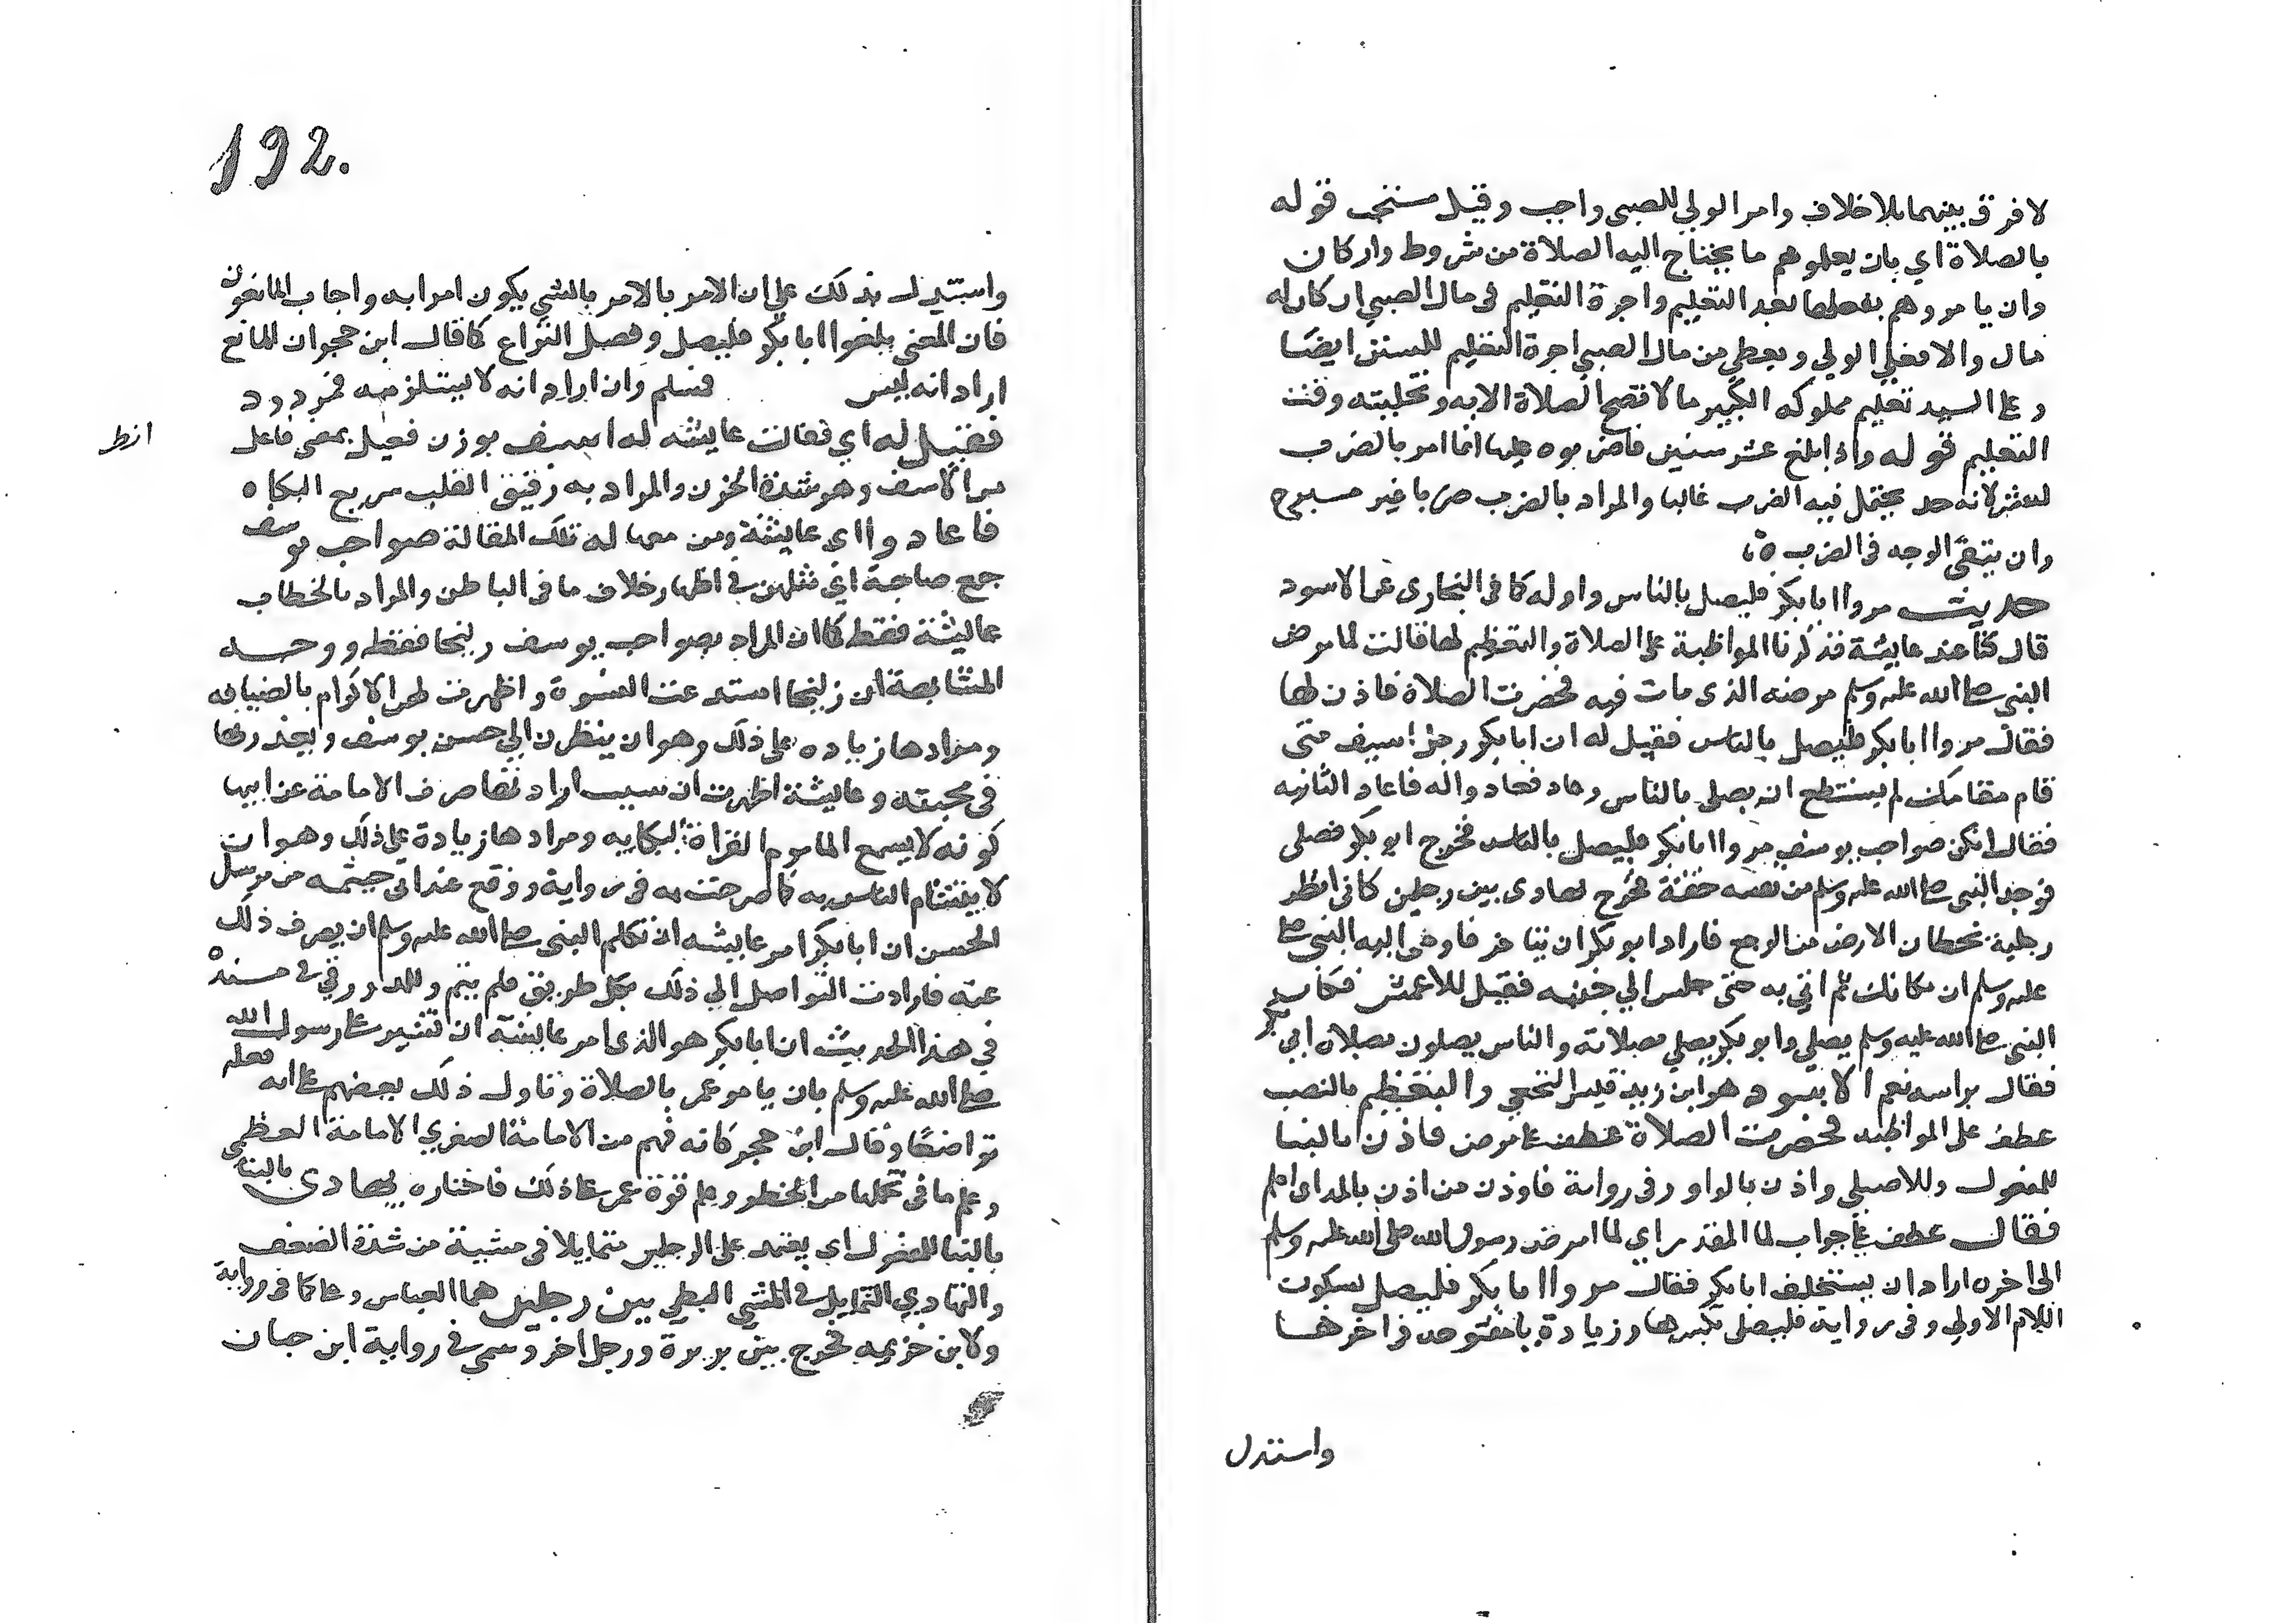 لا فرق بينهما بلا خلاف وامر الولي للصبى واجب وقيل مستحب قوله
بالصلاة اي بان يعلموهم ما يحتاج اليه الصلاة من شروط واركان
وان يامروهم بفعلها بعد التعليم واجرة التعليم فى مال الصبي ان كان له
مال والا فعلي الولي ويعطي من مال الصبي اجرة التعليم للسنن ايضا
وعلى السيد تعليم مملوكه الكبير ما لا تصح الصلاة الا به وتخليته وقت
التعليم قوله واذا بلغ عشر سنين فاضربوه عليها انما امر بالضرب
لعشر لانه حد يحتمل فيه الضرب غالبا والمراد بالضرب ضربا غير مبرح
وان يتقى الوجه فى الضرب
حديث مروا ابا بكر فليصل بالناس واوله كما فى البخارى عن الاسود
قال كنا عند عايشة فذكرنا المواظبة على الصلاة والتعظيم لها قالت لما مرض
النبى صلى الله عليه وسلم مرضه الذى مات فيه فحضرت الصلاة فاذن لها
فقال مروا ابا بكر فليصل بالناس فقيل له ان ابا بكر رجل اسيف متى
قام مقامك لم يستطع ان يصلى بالناس وعاد فعادوا له فاعاد الثانيه
فقال انكن صواحب يوسف مروا ابا بكر فليصل بالناس فخرج ابو بكر فصلى
فوجد النبى صلى الله عليه وسلم من نفسه خفة فخرج يهادى بين رجلين كانى انظر
رجليه تخطان الارض من الوجع فاراد ابو بكر ان يتاخر فاومى اليه النبى صلى
عليه وسلم ان مكانك ثم اتي به حتى جلس الي جنبه فقيل للاعمش فكان
النبى صلى الله عليه وسلم يصلي وابو بكر يصلي بصلاته والناس يصلون بصلاة ابي بكر
فقال براسه نعم الاسود هو ابن زيد قيس النخعي والتعظيم بالنصب
عطف على المواظبه فحضرت الصلاة عطف على مرض فاذن بالبنا
للمفعول وللاصيلى واذن بالواو وفى رواية فاوذن من اذن بالمد اى اعلم
فقال عطف على جواب لما المقدر اي لما مرض رسول الله صلى الله عليه وسلم
الى اخره اراد ان يستخلف ابا بكر فقال مروا ابا بكر فليصل بسكون
اللام الاولي وفى رواية فليصلى بكسرها وزيادة يا مفتوحة فى اخرها
واستدل
192.
واستدل بذلك على ان الامر بالامر بالشي يكون امرا به واجاب المانعون
فان المعنى بلغوا ابا بكر فليصل وفصل النزاع كما قال ابن حجر ان المانع
اراد انه ليس فسلم وان اراد انه لا يستلزمه فمردود
فقيل له اي فقالت عايشه له اسيف بوزن فعيل بمعنى فاعل
انظر
من الاسف وهو شدة الحزن والمراد به رقيق القلب سريع البكاء
فاعادوا اى عايشة ومن معها له تلك المقالة صواحب يوسف
جمع صاحبة اي مثلهن في اظهار خلاف ما فى الباطن والمراد بالخطاب
عايشة فقط كما ان المراد بصواحب يوسف زليخا فقط ووجه
المشابهة ان زليخا استدعت النسوة واظهرت لهن الاكرام بالضيافه
ومرادها زياده على ذلك وهو ان ينظرن الي حسن يوسف ويعذرنها
فى محبته وعايشة اظهرت ان سبب ارادتها صرف الامامة عن ابيها
كونه لا يسمع الماموم القراة لبكايه ومرادها زيادة على ذلك وهو ان
لا يتشام الناس به كما صرحت به فى رواية ووقع عند ابى خيثمه من مرسل
الحسن ان ابا بكر امر عايشه ان تكلم النبى صلى الله عليه وسلم ان يصرف ذلك
عنه فارادت التواصل الي ذلك بكل طريق فلم يتم وللدورقي فى مسنده
في هذا الحديث ان ابا بكر هو الذى امر عايشة ان تشير على رسول الله
صلى الله عليه وسلم بان يامر عمر بالصلاة وتاول ذلك بعضهم على انه فعله
تواضعا وقال ابن حجر كانه فهم من الامامة الصغري الامامة العظمى
وعلم ما فى تحملها من الخطر وعلم قوة عمر على ذلك فاختاره يهادى بالبنا
بالبنا للمفعول اى يعتمد على الرجلين متمايلا فى مشيه من شدة الضعف
والتهادي التمايل فى المشي البطي بين رجلين هما العباس وعلى كما فى رواية
ولابن خزيمه فخرج بين بريرة ورجل اخر وسمي في رواية ابن حبان